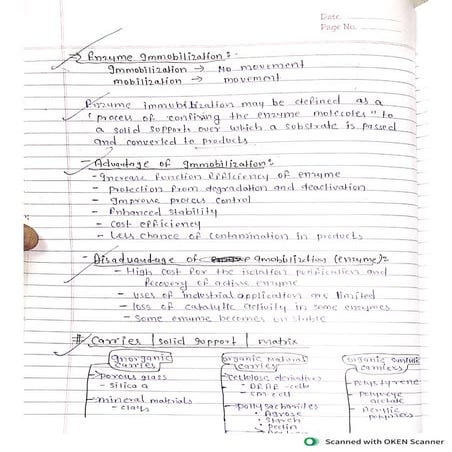 Date
Page No.
⇒ Enzyme Immobilization:-
Immobilization → No movement
mobilization → movement
Enzyme immobilization may be defined as a
"process of confixing the enzyme molecoles" to
a solid support over which a substrate is passed
and converted to products
- Advantage of Immobilization:
- Increase function Efficiency of enzyme
- protection from degradation and deactivation
- Improve process control
- Enhanced stability
- cost efficiency
- Less chance of contamination in products
- Disadvantage of Immobilization (enzyme):
- High cost for the isolation purification and
Recovery of active enzyme
- uses of industrial application are limited
- loss of catalytic activity in some enzymes
- Some enzyme becomes un stable
# Carries | solid support | matrix
Inorganic carries
- porous glass
- silica
- mineral materials
- clays
organic Natural carries
- Cellulose derivatives
- DEAE - cello
- cm-cell
- polysaccharides
- Agrose
- Starch
- Pectin
organic carriers
- Polystyrene
- Acrylic polymers
Scanned with OKEN Scanner